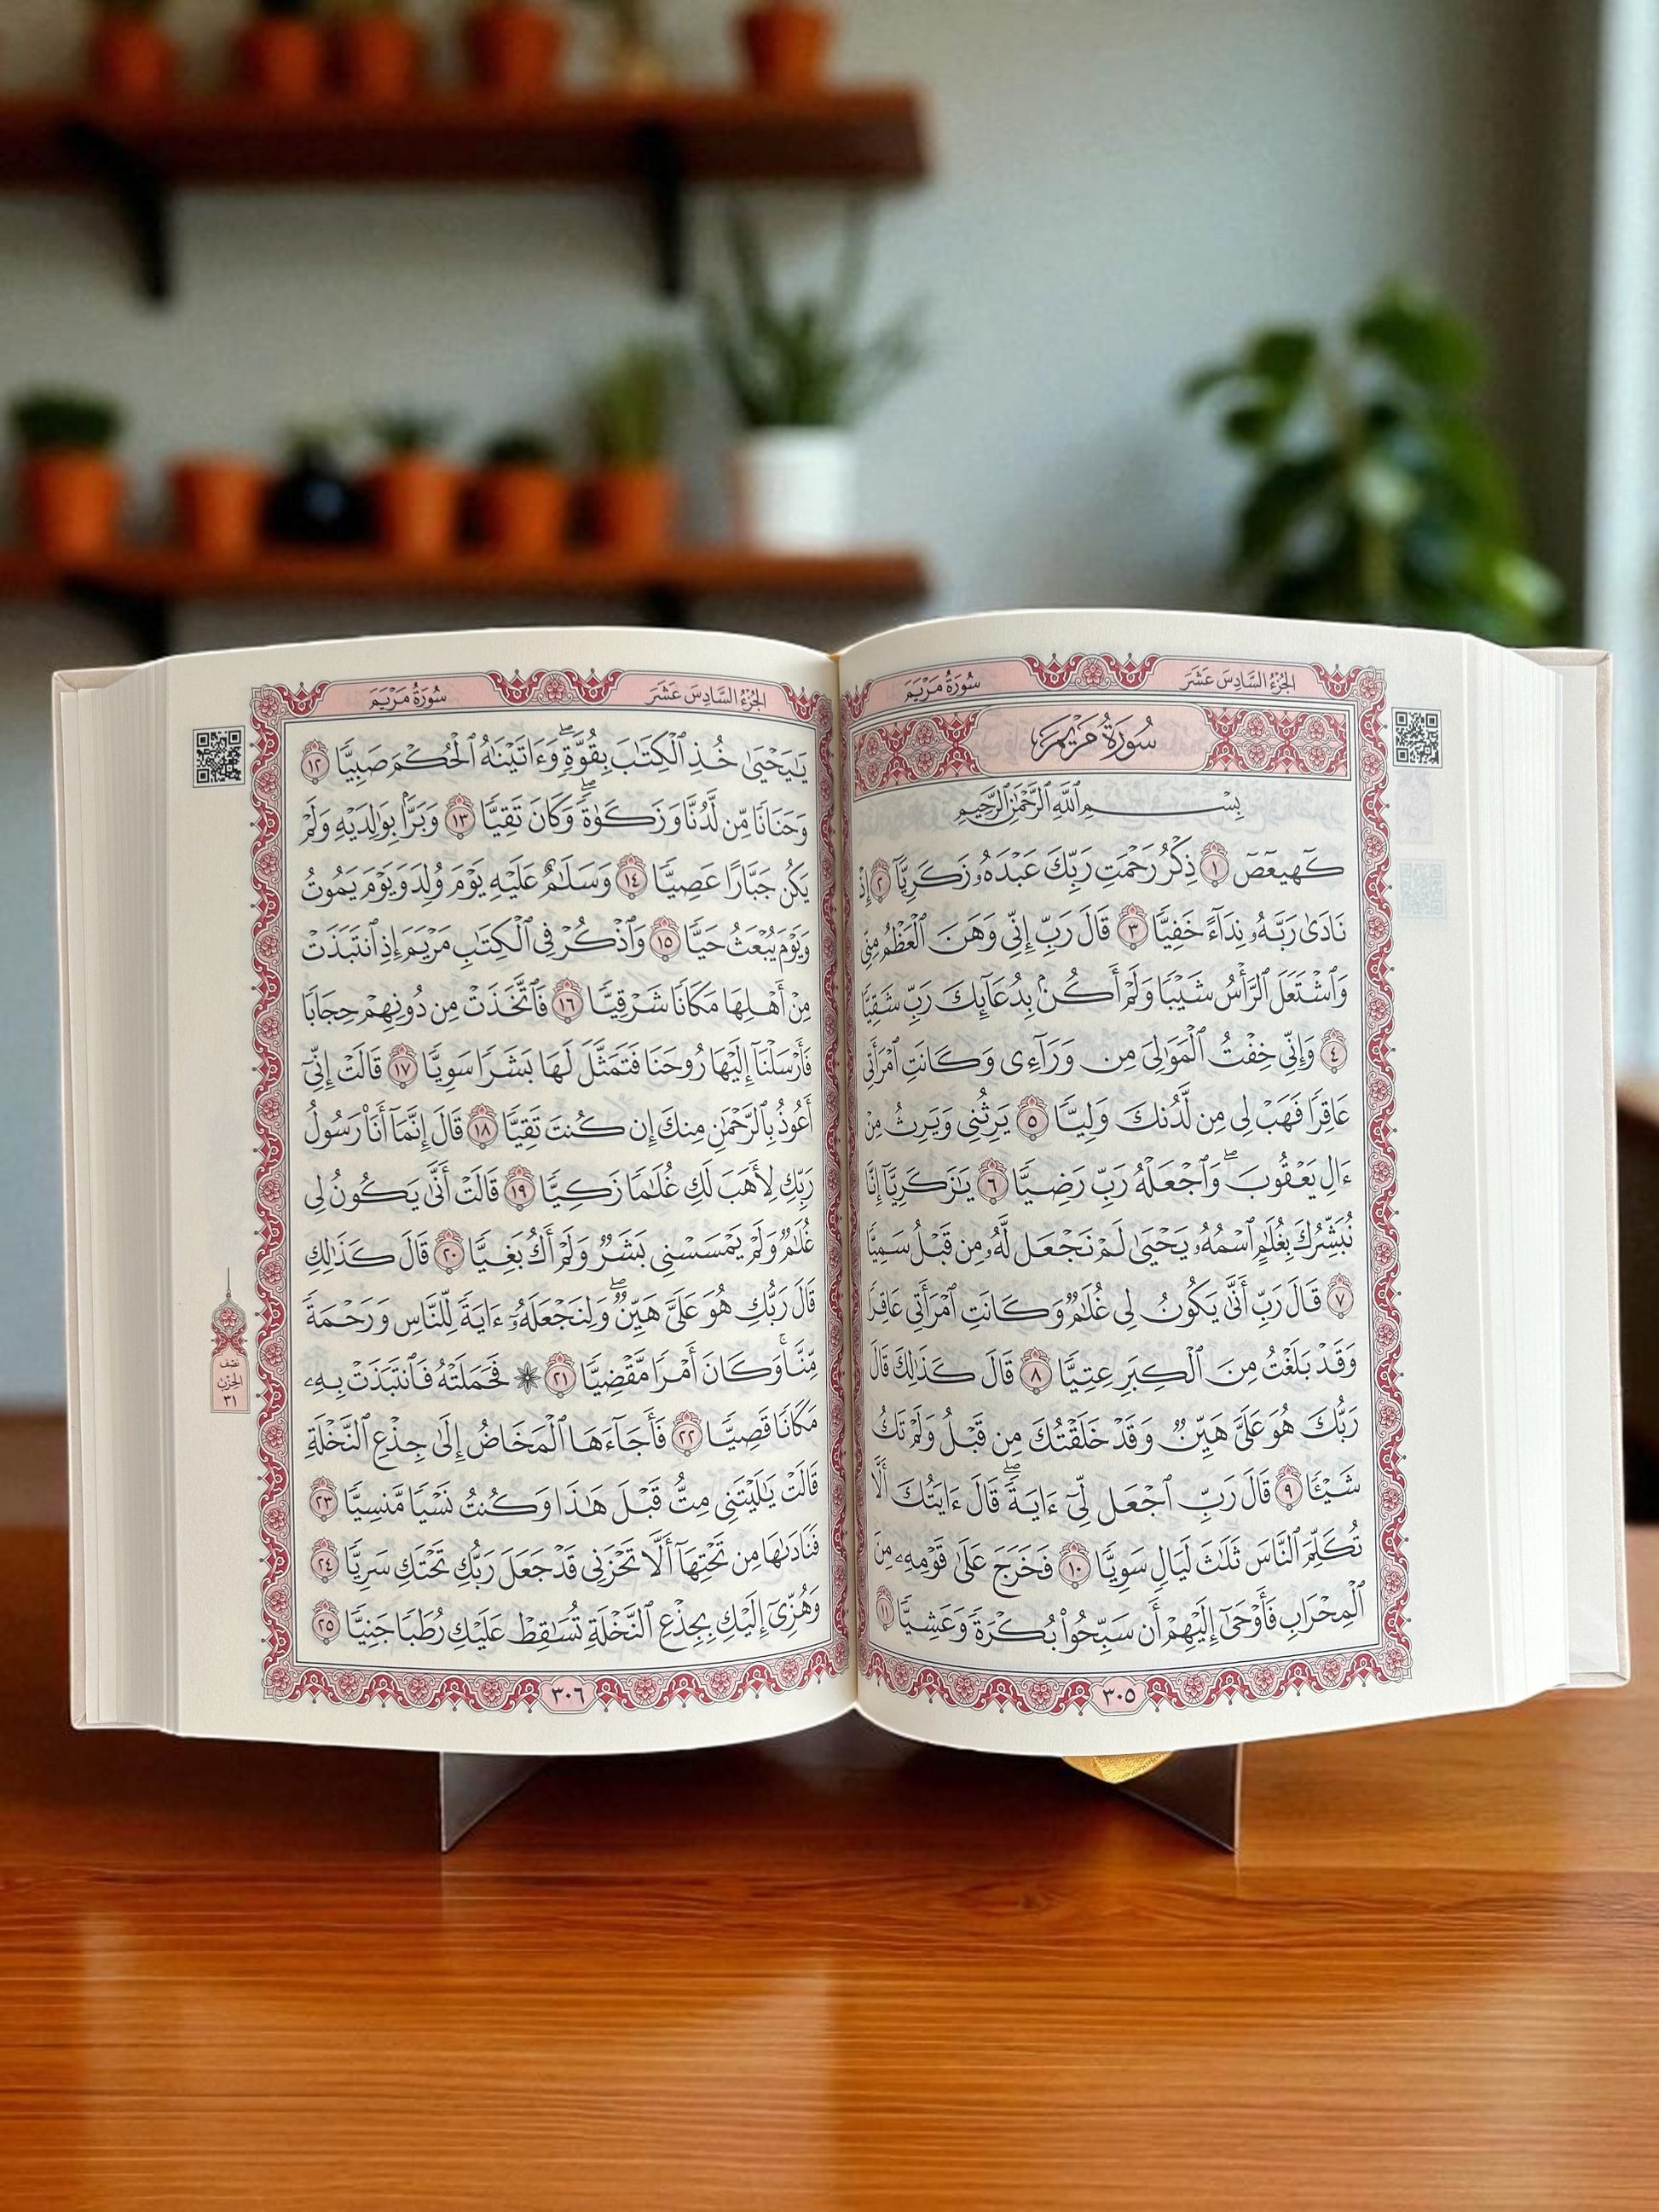 الجُزْءُ السَّادِسَ عَشَرَ
سُورَةُ مَرْيَمَ
سُورَةُ مَرْيَمَ
بِسْمِ ٱللَّهِ ٱلرَّحْمَٰنِ ٱلرَّحِيمِ
كٓهيعٓصٓ ١ ذِكْرُ رَحْمَتِ رَبِّكَ عَبْدَهُۥ زَكَرِيَّآ ٢ إِذْ
نَادَىٰ رَبَّهُۥ نِدَآءً خَفِيًّا ٣ قَالَ رَبِّ إِنِّي وَهَنَ ٱلْعَظْمُ مِنِّي
وَٱشْتَعَلَ ٱلرَّأْسُ شَيْبًا وَلَمْ أَكُنۢ بِدُعَآئِكَ رَبِّ شَقِيًّا
٤ وَإِنِّي خِفْتُ ٱلْمَوَٰلِيَ مِن وَرَآءِي وَكَانَتِ ٱمْرَأَتِي
عَاقِرًا فَهَبْ لِي مِن لَّدُنكَ وَلِيًّا ٥ يَرِثُنِي وَيَرِثُ مِنْ
ءَالِ يَعْقُوبَۖ وَٱجْعَلْهُ رَبِّ رَضِيًّا ٦ يَٰزَكَرِيَّآ إِنَّا
نُبَشِّرُكَ بِغُلَٰمٍ ٱسْمُهُۥ يَحْيَىٰ لَمْ نَجْعَل لَّهُۥ مِن قَبْلُ سَمِيًّا
٧ قَالَ رَبِّ أَنَّىٰ يَكُونُ لِي غُلَٰمٌ وَكَانَتِ ٱمْرَأَتِي عَاقِرًا
وَقَدْ بَلَغْتُ مِنَ ٱلْكِبَرِ عِتِيًّا ٨ قَالَ كَذَٰلِكَ قَالَ
رَبُّكَ هُوَ عَلَيَّ هَيِّنٌ وَقَدْ خَلَقْتُكَ مِن قَبْلُ وَلَمْ تَكُ
شَيْـًٔا ٩ قَالَ رَبِّ ٱجْعَل لِّيٓ ءَايَةًۖ قَالَ ءَايَتُكَ أَلَّا
تُكَلِّمَ ٱلنَّاسَ ثَلَٰثَ لَيَالٍ سَوِيًّا ١٠ فَخَرَجَ عَلَىٰ قَوْمِهِۦ مِنَ
ٱلْمِحْرَابِ فَأَوْحَىٰٓ إِلَيْهِمْ أَن سَبِّحُوا۟ بُكْرَةً وَعَشِيًّا ١١
٣٠٥
الجُزْءُ السَّادِسَ عَشَرَ
سُورَةُ مَرْيَمَ
يَٰيَحْيَىٰ خُذِ ٱلْكِتَٰبَ بِقُوَّةٍۖ وَءَاتَيْنَٰهُ ٱلْحُكْمَ صَبِيًّا ١٢
وَحَنَانًا مِّن لَّدُنَّا وَزَكَوٰةًۖ وَكَانَ تَقِيًّا ١٣ وَبَرًّۢا بِوَٰلِدَيْهِ وَلَمْ
يَكُن جَبَّارًا عَصِيًّا ١٤ وَسَلَٰمٌ عَلَيْهِ يَوْمَ وُلِدَ وَيَوْمَ يَمُوتُ
وَيَوْمَ يُبْعَثُ حَيًّا ١٥ وَٱذْكُرْ فِي ٱلْكِتَٰبِ مَرْيَمَ إِذِ ٱنتَبَذَتْ
مِنْ أَهْلِهَا مَكَانًا شَرْقِيًّا ١٦ فَٱتَّخَذَتْ مِن دُونِهِمْ حِجَابًا
فَأَرْسَلْنَآ إِلَيْهَا رُوحَنَا فَتَمَثَّلَ لَهَا بَشَرًا سَوِيًّا ١٧ قَالَتْ إِنِّيٓ
أَعُوذُ بِٱلرَّحْمَٰنِ مِنكَ إِن كُنتَ تَقِيًّا ١٨ قَالَ إِنَّمَآ أَنَا۠ رَسُولُ
رَبِّكِ لِأَهَبَ لَكِ غُلَٰمًا زَكِيًّا ١٩ قَالَتْ أَنَّىٰ يَكُونُ لِي
غُلَٰمٌ وَلَمْ يَمْسَسْنِي بَشَرٌ وَلَمْ أَكُ بَغِيًّا ٢٠ قَالَ كَذَٰلِكِ
قَالَ رَبُّكِ هُوَ عَلَيَّ هَيِّنٌۖ وَلِنَجْعَلَهُۥٓ ءَايَةً لِّلنَّاسِ وَرَحْمَةً
مِّنَّاۚ وَكَانَ أَمْرًا مَّقْضِيًّا ٢١ ۞ فَحَمَلَتْهُ فَٱنتَبَذَتْ بِهِۦ
مَكَانًا قَصِيًّا ٢٢ فَأَجَآءَهَا ٱلْمَخَاضُ إِلَىٰ جِذْعِ ٱلنَّخْلَةِ
قَالَتْ يَٰلَيْتَنِي مِتُّ قَبْلَ هَٰذَا وَكُنتُ نَسْيًا مَّنسِيًّا ٢٣
فَنَادَىٰهَا مِن تَحْتِهَآ أَلَّا تَحْزَنِي قَدْ جَعَلَ رَبُّكِ تَحْتَكِ سَرِيًّا ٢٤
وَهُزِّيٓ إِلَيْكِ بِجِذْعِ ٱلنَّخْلَةِ تُسَٰقِطْ عَلَيْكِ رُطَبًا جَنِيًّا ٢٥
نصْف
الحِزْبِ
٣١
٣٠٦